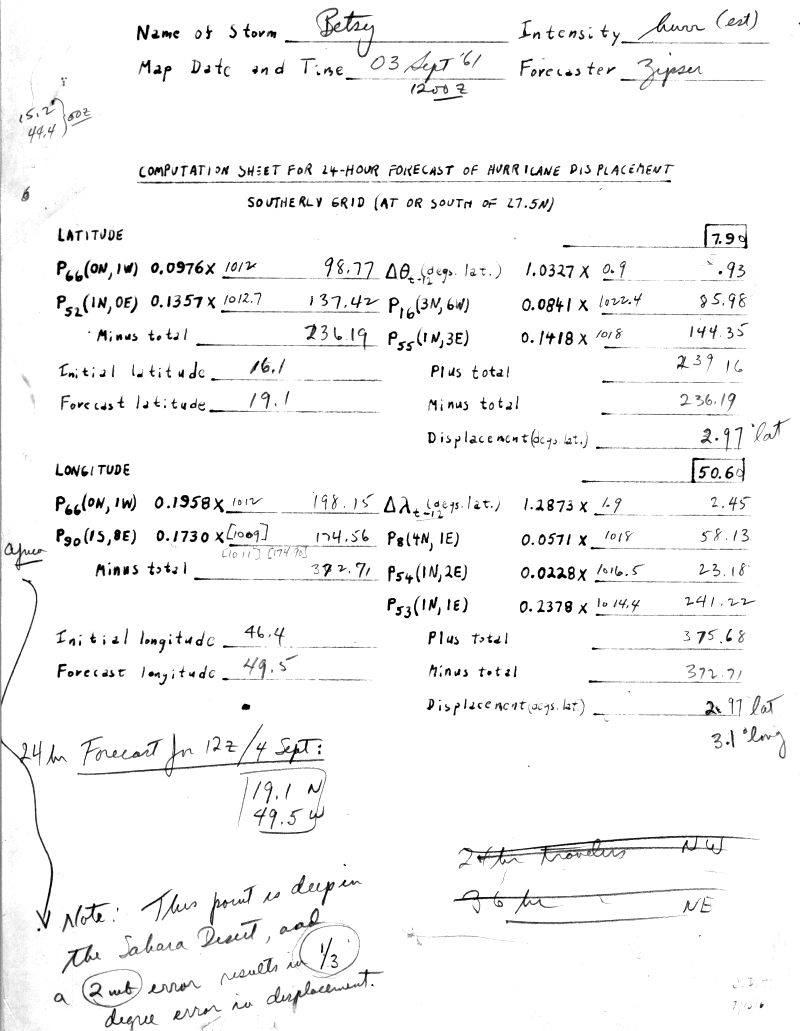 Name of Storm Betsy Intensity hurr (est)
Map Date and Time 03 Sept '61 Forecaster Zipser
1200 Z
15.2
44.4 } 00Z
COMPUTATION SHEET FOR 24-HOUR FORECAST OF HURRICANE DISPLACEMENT
SOUTHERLY GRID (AT OR SOUTH OF 27.5N)
LATITUDE 7.90
P66(0N, 1W) 0.0976 X 1012 98.77 Δθt-12 (degs. lat.) 1.0327 X 0.9 .93
P52(1N, 0E) 0.1357 X 1012.7 137.42 P16(3N, 6W) 0.0841 X 1022.4 85.98
Minus total 236.19 P55(1N, 3E) 0.1418 X 1018 144.35
Initial latitude 16.1 Plus total 239 16
Forecast latitude 19.1 Minus total 236.19
Displacement (degs. lat.) 2.97 °lat
LONGITUDE 50.60
P66(0N, 1W) 0.1958 X 1012 198.15 Δλt-12 (degs. lat.) 1.2873 X 1.9 2.45
P90(1S, 8E) 0.1730 X [1009] 174.56 P8(4N, 1E) 0.0571 X 1018 58.13
[1011] [174.90]
Minus total 372.71 P54(1N, 2E) 0.0228 X 1016.5 23.18
P53(1N, 1E) 0.2378 X 1014.4 241.22
Initial longitude 46.4 Plus total 375.68
Forecast longitude 49.5 Minus total 372.71
Displacement (degs. lat) 2.97 lat
3.1 °long
24 hr Forecast for 12Z/4 Sept:
19.1 N
49.5 W
24 hr travelers NW
36 hr NE
Note: This point is deep in
the Sahara Desert, and
a 2 mb error results in 1/3
degree error in displacement.